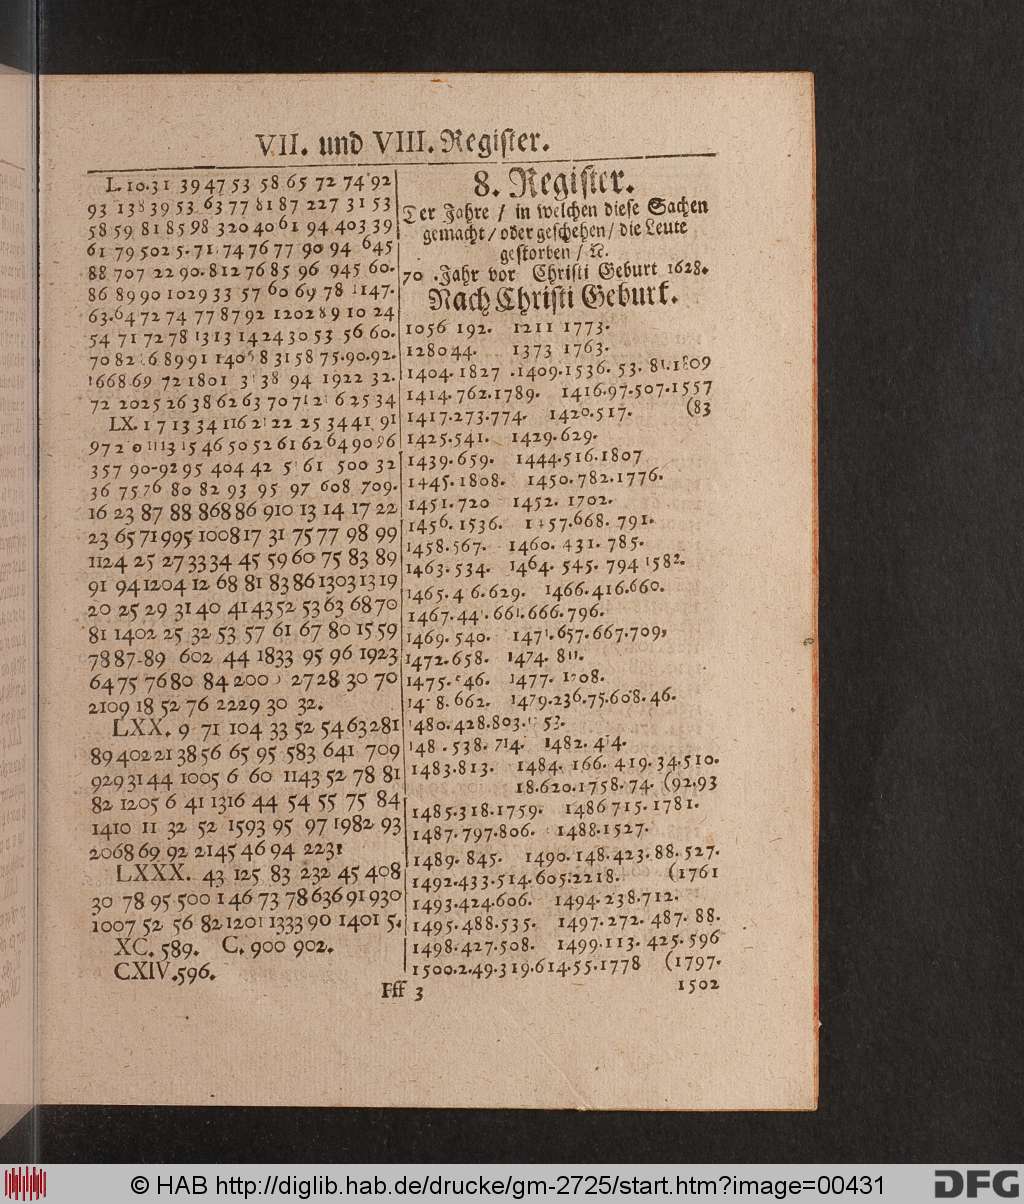 VII. und VIII. Register.
L. 10.31 39 47 53 58 65 72 74 92
93 138 39 53 63 77 81 87 227 31 53
58 59 81 85 98 320 40 61 94 403 39
61 79 502 5. 71 74 76 77 90 94 645
88 707 22 90. 812 76 85 96 945 60.
86 89 90 1029 33 57 60 69 78 1147.
63. 64 72 74 77 87 92 1202 89 10 24
54 71 72 78 1313 1424 30 53 56 60.
70 82 86 89 91 83 1 58 75. 90. 92.
1668 69 72 1801 38 94 1922 32.
72 2025 26 38 62 63 70 25 34
LX. 1 7 13 34 116 22 25 34 41 91
97 13 15 46 50 52 61 62 64 90 96
357 90-92 95 404 42 61 500 32
36 75 76 80 82 93 95 97 608 709.
16 23 87 88 868 86 910 13 14 17 22
23 65 71 995 1008 17 31 75 77 98 99
1124 25 27 33 34 45 59 60 75 83 89
91 94 1204 12 68 81 83 86 1303 13 19
20 25 29 31 40 41 43 52 53 63 68 70
81 1402 25 32 53 57 61 67 80 15 59
78 87-89 602 44 1833 95 96 1923
64 75 76 80 84 27 28 30 70
2109 18 52 76 2229 30 32.
LXX. 9 71 104 33 52 54 63 281
89 402 21 38 56 65 95 583 641 709
929 31 44 1005 6 60 1143 52 78 81
82 1205 6 41 1316 44 54 55 75 84
1410 11 32 52 1593 95 97 1982 93
2068 69 92 2145 46 94 2231
LXXX. 43 125 83 232 45 408
30 78 95 500 1 46 73 78 636 91 930
1007 52 56 82 1201 1333 90 1401 5.
XC. 589. C. 900 902.
CXIV. 596.
8. Register.
Der Jahre / in welchen diese Sachen
gemacht / oder geschehen / die Leute
gestorben / ꝛc.
70. Jahr vor Christi Geburt 1628.
Nach Christi Geburt.
1056 192. 1211 1773.
1280 44. 1373 1763.
1404. 1827. 1409. 1536. 53. 81. 1809
1414. 762. 1789. 1416. 97. 507. 1557
1417. 273. 774. 1420. 517. (83
1425. 541. 1429. 629.
1439. 659. 1444. 516. 1807
1445. 1808. 1450. 782. 1776.
1451. 720 1452. 1702.
1456. 1536. 1457. 668. 791.
1458. 567. 1460. 431. 785.
1463. 534. 1464. 545. 794 1582.
1465. 629. 1466. 416. 660.
1467. 661. 666. 796.
1469. 540. 1471. 657. 667. 709,
1472. 658. 1474. 811.
1475. 1477.
662. 1479. 236. 75. 608. 46.
1480. 428. 803.
538. 714. 1482.
1483. 813. 1484. 166. 419. 34. 510.
18. 620. 1758. 74. (92. 93
1485. 318. 1759. 1486 715. 1781.
1487. 797. 806. 1488. 1527.
1489. 845. 1490. 148. 423. 88. 527.
1492. 433. 514. 605. 2218. (1761
1493. 424. 606. 1494. 238. 712.
1495. 488. 535. 1497. 272. 487. 88.
1498. 427. 508. 1499. 113. 425. 596
1500. 2. 49. 319. 614. 55. 1778 (1797.
Fff 3
1502
© HAB http://diglib.hab.de/drucke/gm-2725/start.htm?image=00431
DFG